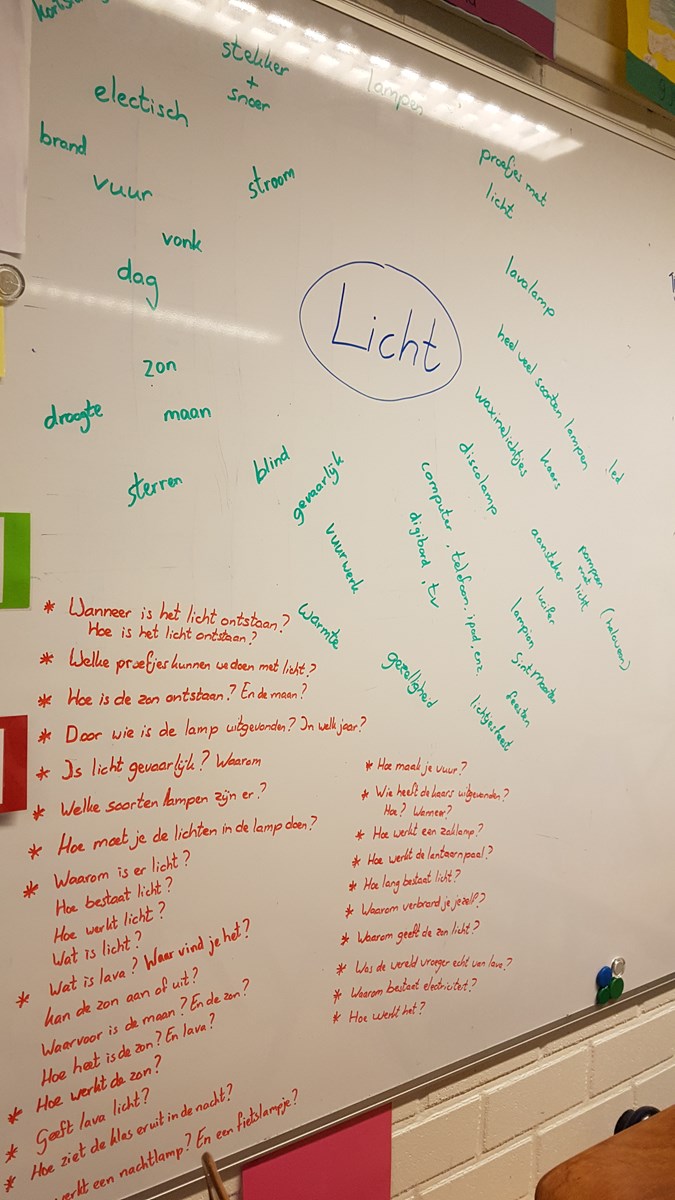 stekker
+
snoer
lampen
electisch
brand
vuur
stroom
vonk
dag
zon
droogte
maan
sterren
blind
gevaarlijk
vuurwerk
warmte
gezelligheid
Licht
proefjes met
licht
lavalamp
heel veel soorten lampen
led
waxinelichtjes
kaars
discolamp
computer, telefoon, ipod, enz.
digibord, tv
aansteker
lucifer
pompoen
met
licht
(haloween)
lampion
Sint maarten
feesten
lichtjesfeest
* Wanneer is het licht ontstaan?
Hoe is het licht ontstaan?
* Welke proefjes kunnen we doen met licht?
* Hoe is de zon ontstaan? En de maan?
* Door wie is de lamp uitgevonden? In welk jaar?
* Is licht gevaarlijk? Waarom
* Welke soorten lampen zijn er?
* Hoe moet je de lichten in de lamp doen?
* Waarom is er licht?
Hoe bestaat licht?
Hoe werkt licht?
Wat is licht?
* Wat is lava? Waar vind je het?
kan de zon aan of uit?
Waarvoor is de maan? En de zon?
Hoe heet is de zon? En lava?
* Hoe werkt de zon?
* Geeft lava licht?
* Hoe ziet de klas eruit in de nacht?
werkt een nachtlamp? En een fietslampje?
* Hoe maak je vuur?
* Wie heeft de kaars uitgevonden?
Hoe? Wanneer?
* Hoe werkt een zaklamp?
* Hoe werkt de lantaarnpaal?
* Hoe lang bestaat licht?
* Waarom verbrand je jezelf?
* Waarom geeft de zon licht?
* Was de wereld vroeger echt van lava?
* Waarom bestaat electriciteit?
* Hoe werkt het?